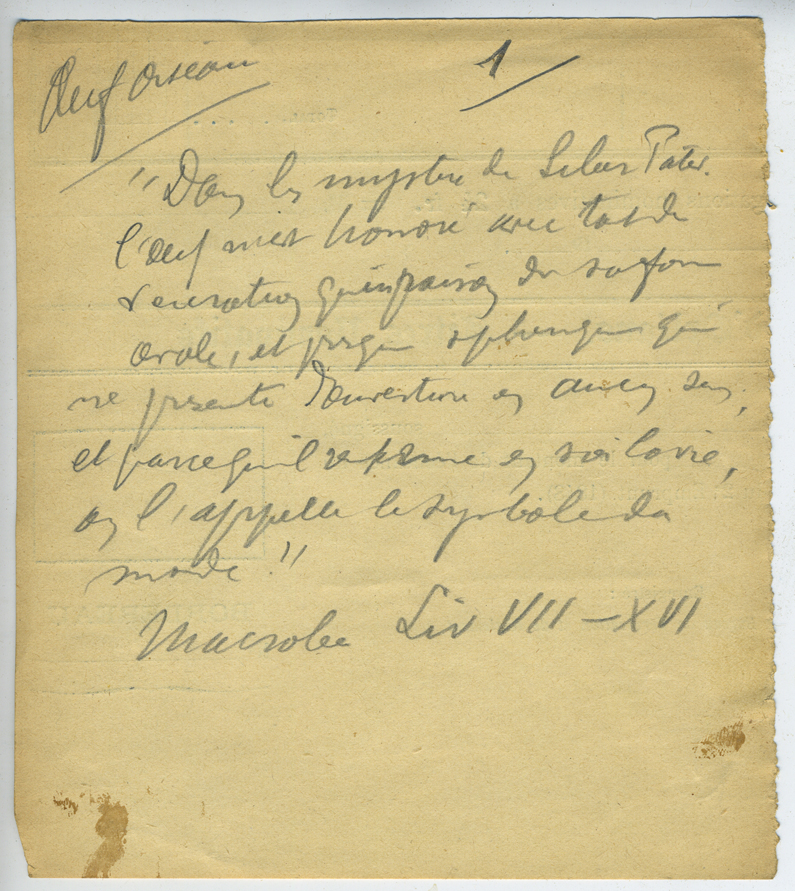 Oeuf Oiseau
1
"Dans les mystères de Liber Pater.
l'oeuf est honoré avec tant de
vénération qu'en raison de sa forme
ovale, et presque sphérique qui
ne présente d'ouverture en aucun sens,
et parce qu'il renferme en soi la vie,
on l'appelle le symbole du
monde."
Macrobe Liv VII – XVI